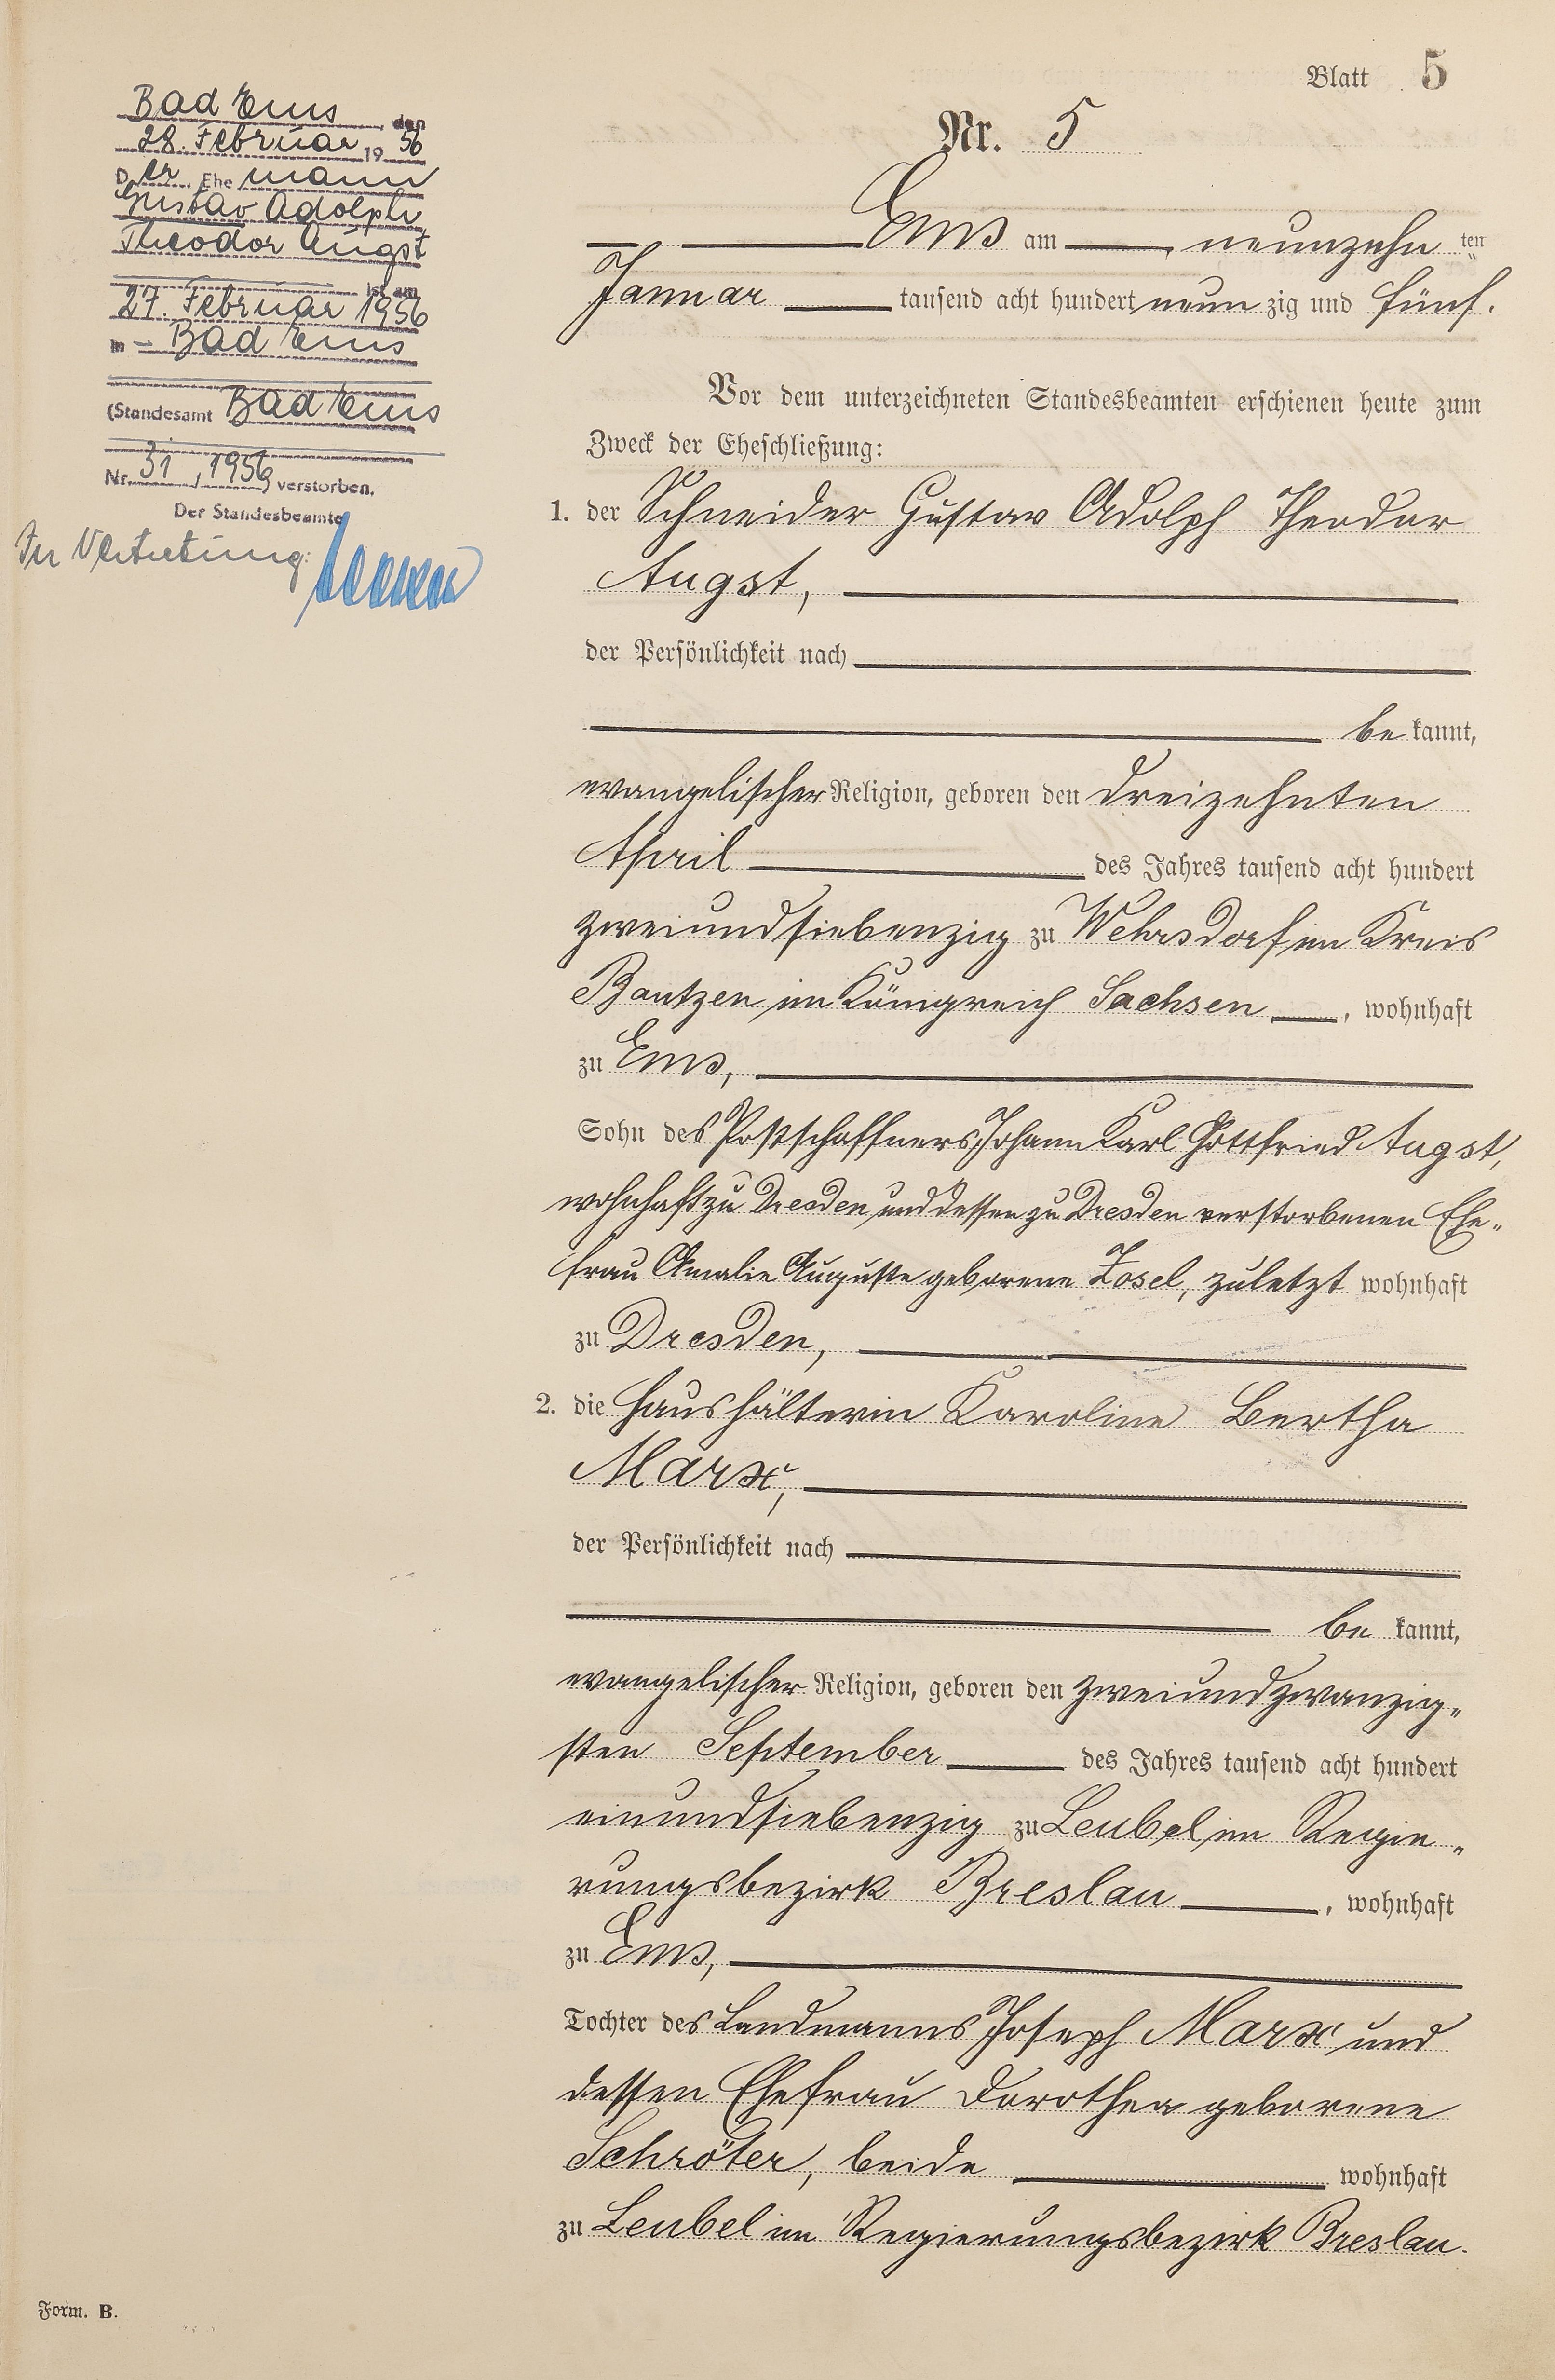 Blatt 5
Nr. 5
Ems am neunzehn ten
Januar tausend acht hundert neun zig und fünf.
Vor dem unterzeichneten Standesbeamten erschienen heute zum
Zweck der Eheschließung:
1. der Schneider Gustav Adolph Theodor
Augst,
der Persönlichkeit nach
be kannt,
evangelischer Religion, geboren den dreizehnten
April des Jahres tausend acht hundert
zweiundsiebenzig zu Wehrsdorf im Kreis
Bautzen im Königreich Sachsen, wohnhaft
zu Ems,
Sohn des Postschaffners Johann Karl Gottfried Augst,
wohnhaft zu Dresden und dessen zu Dresden verstorbenen Ehe-
frau Amalie Auguste geborene Zosel, zuletzt wohnhaft
zu Dresden,
2. die Haushälterin Karoline Bertha
Marx,
der Persönlichkeit nach
be kannt,
evangelischer Religion, geboren den zweiundzwanzig-
sten September des Jahres tausend acht hundert
einundsiebenzig zu Leubel im Regie-
rungsbezirk Breslau, wohnhaft
zu Ems,
Tochter des Landmanns Joseph Marx und
dessen Ehefrau Dorothea geborene
Schröter, beide wohnhaft
zu Leubel im Regierungsbezirk Breslau.
Bad Ems, den
28. Februar 1956
Der Ehemann
Gustav Adolph
Theodor Augst
ist am
27. Februar 1956
in - Bad Ems
(Standesamt Bad Ems
Nr. 31, 1956 verstorben.
Der Standesbeamte
In Vertretung:
Form. B.